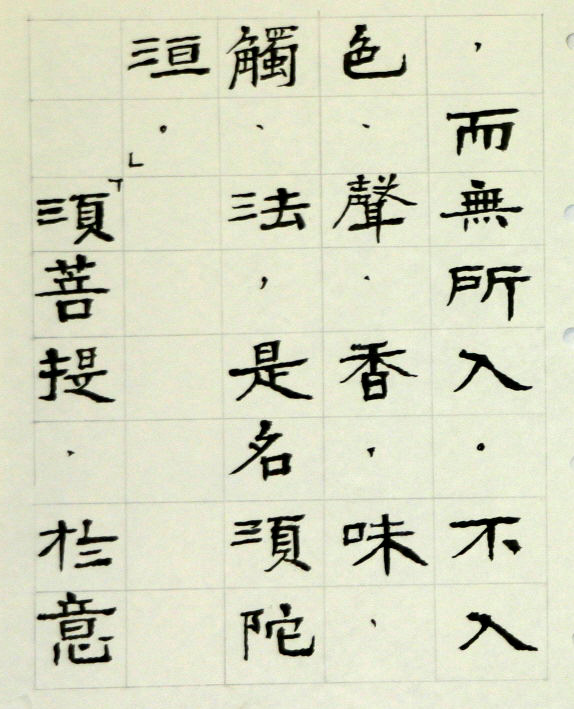 ，而無所入．不入
色、聲．香、味、
觸、法，是名湏陀
洹。」
「湏菩提、於意